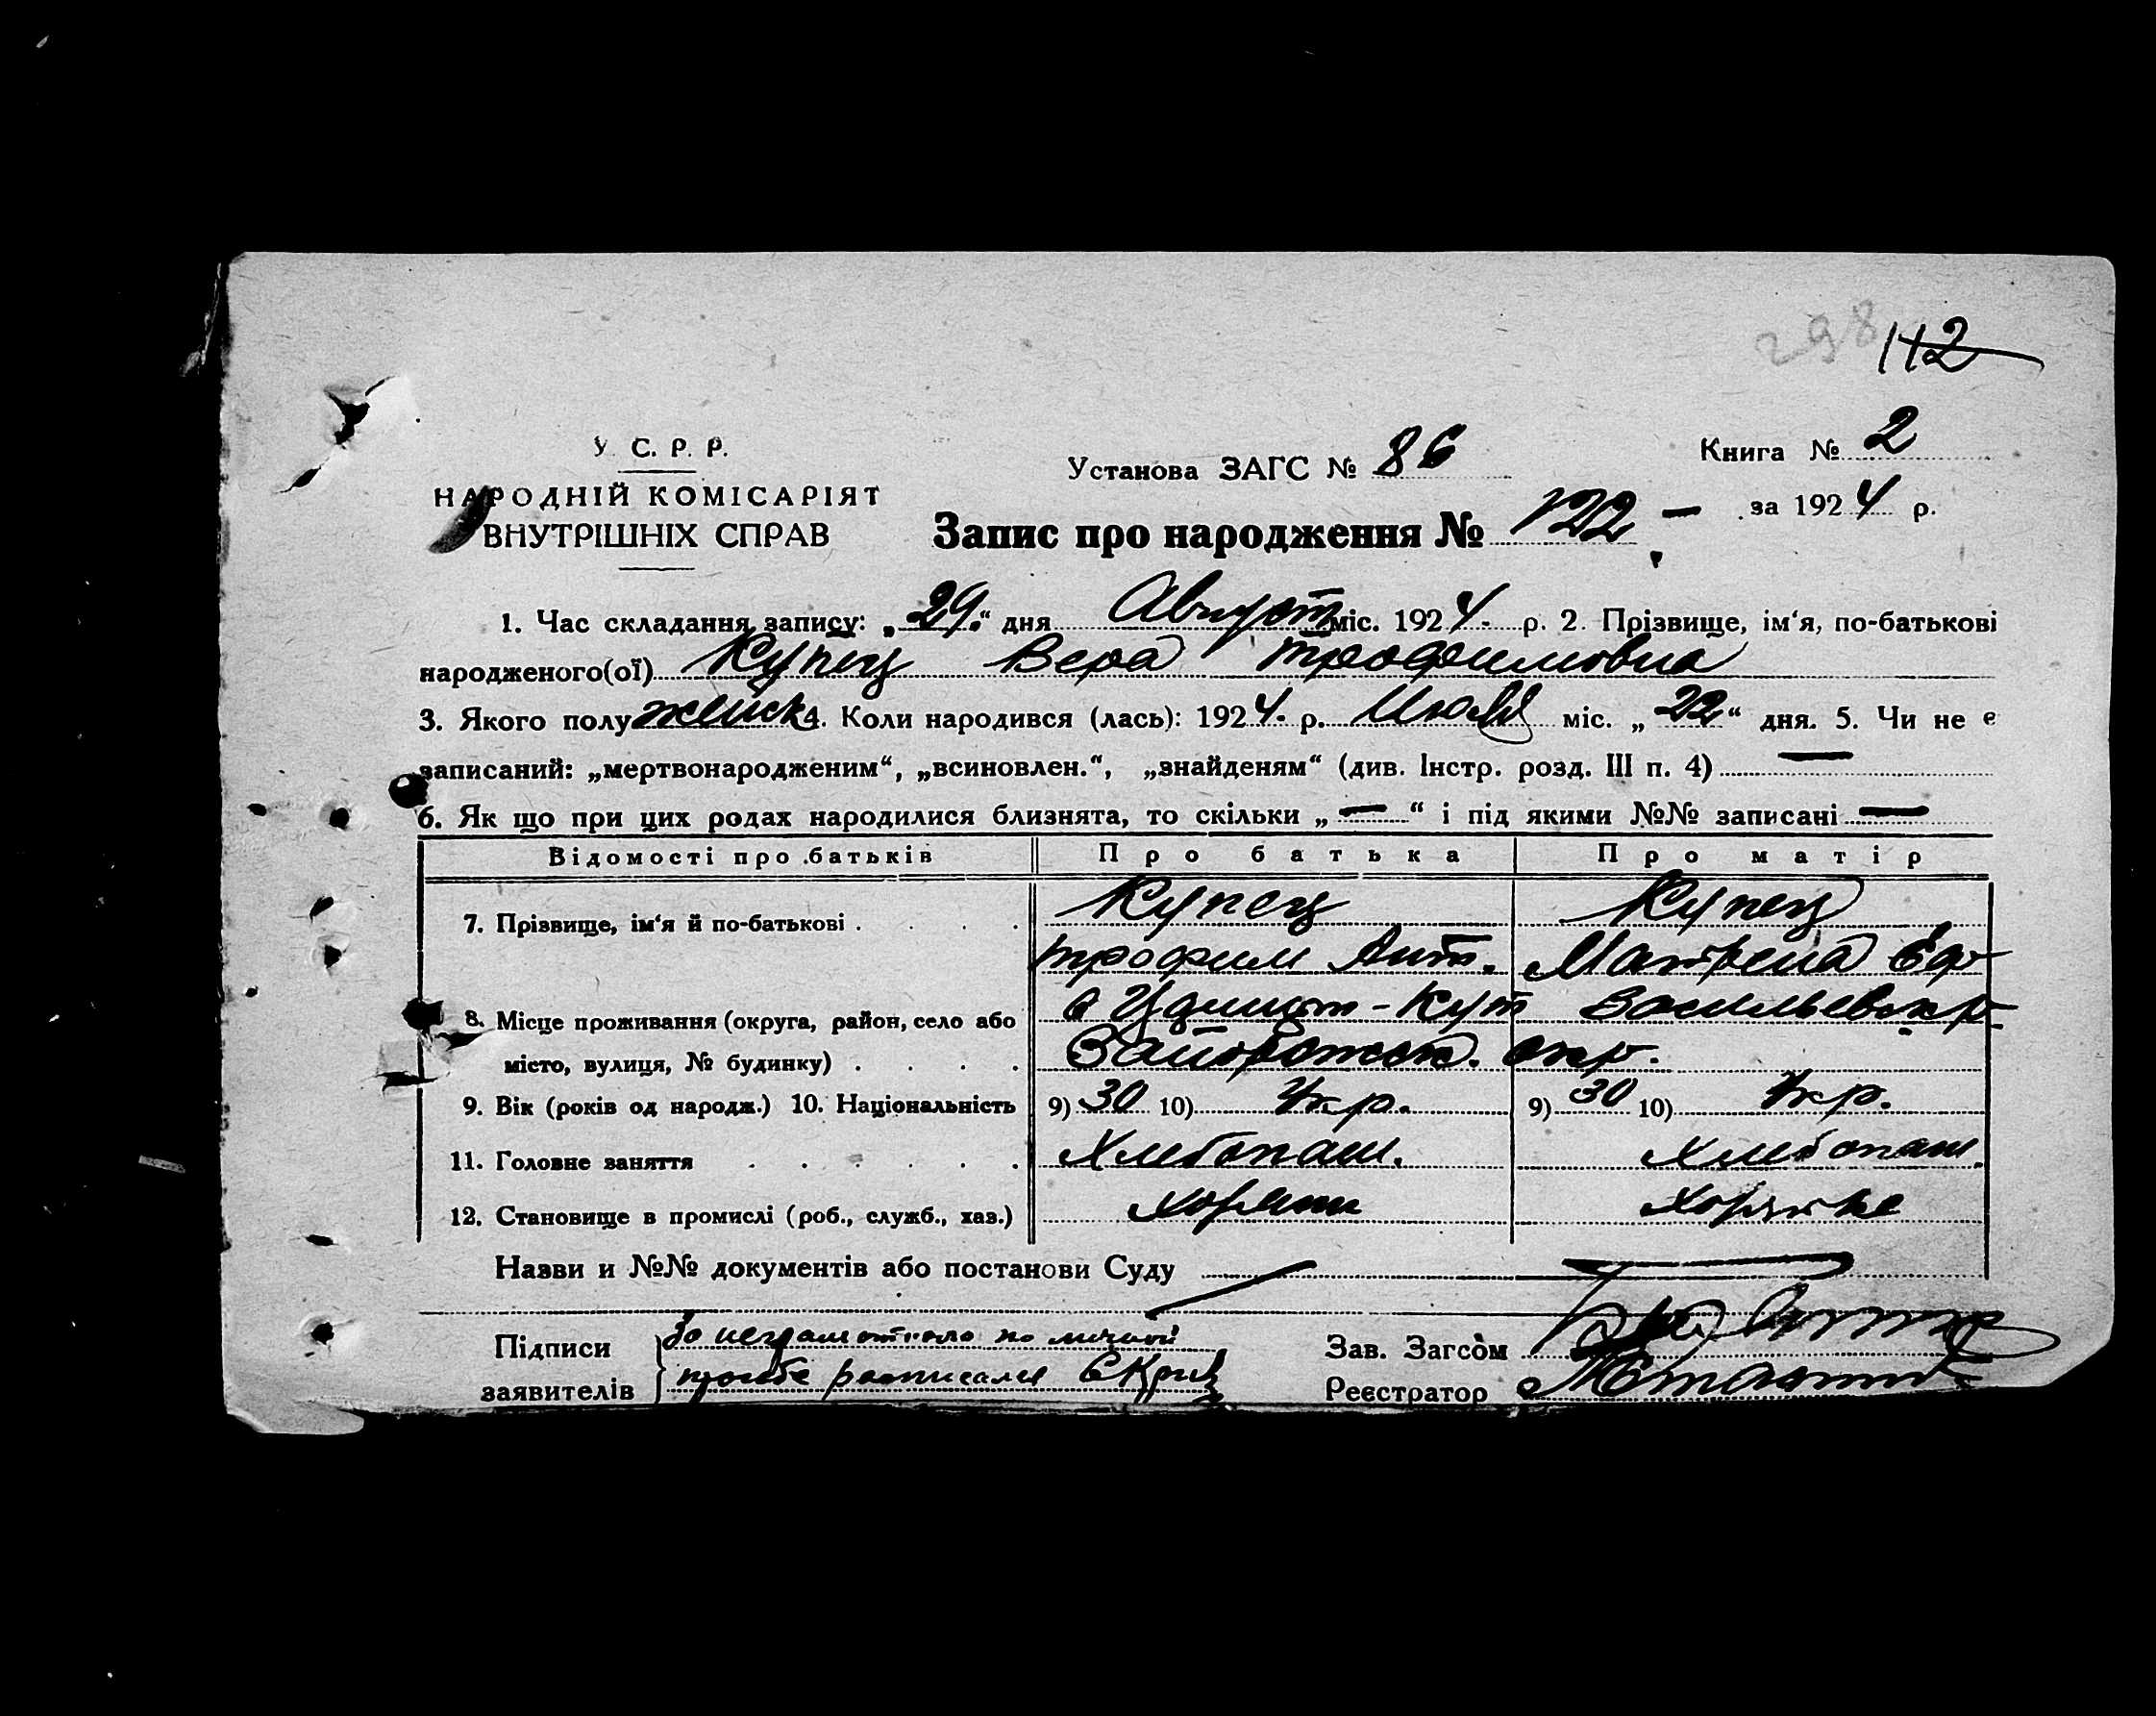 298 112
У. С. Р. Р.
НАРОДНІЙ КОМІСАРІЯТ
ВНУТРІШНІХ СПРАВ
Установа ЗАГС № 86
Книга № 2
за 1924 р.
Запис про народження № 122 -
1. Час складання запису: „29“ дня Август міс. 1924 р. 2. Прізвище, ім‘я, по-батькові
народженого(ої) Купец Вера Трофимовна
3. Якого полу женск 4. Коли народився (лась): 1924 р. Июля міс. „22“ дня. 5. Чи не є
записаний: „мертвонародженим“, „всиновлен.“, „знайденям“ (див. Інстр. розд. III п. 4) —
6. Як що при цих родах народилися близнята, то скільки „—“ і під якими №№ записані —
Відомості про батьків Про батька Про матір
7. Прізвище, ім‘я й по-батькові . . . . Купец Купец
Трофим Ант. Матрена Еф
8. Місце проживання (округа, район, село або
-Кут Васильевск р.
місто, вулиця, № будинку) . . . . Запорожск. окр.
9. Вік (років од народж.) 10. Національність 9) 30 10) Укр. 9) 30 10) Укр.
11. Головне заняття . . . . . . Хлебопаш. Хлебопаш.
12. Становище в промислі (роб., служб., хаз.)
Назви и №№ документів або постанови Суду
Підписи
заявителів
За неграмотного по личной
просьбе расписался
Зав. Загсом
Реєстратор